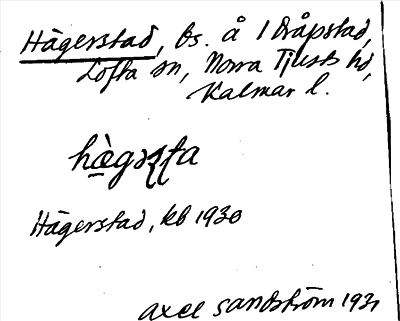 Hägerstad, bs. å 1 Dråpstad,
Lofta sn, Norra Tjusts hd,
Kalmar l.
hàgəʂʈa
Hägerstad, kb 1930
Axel Sandström 1931